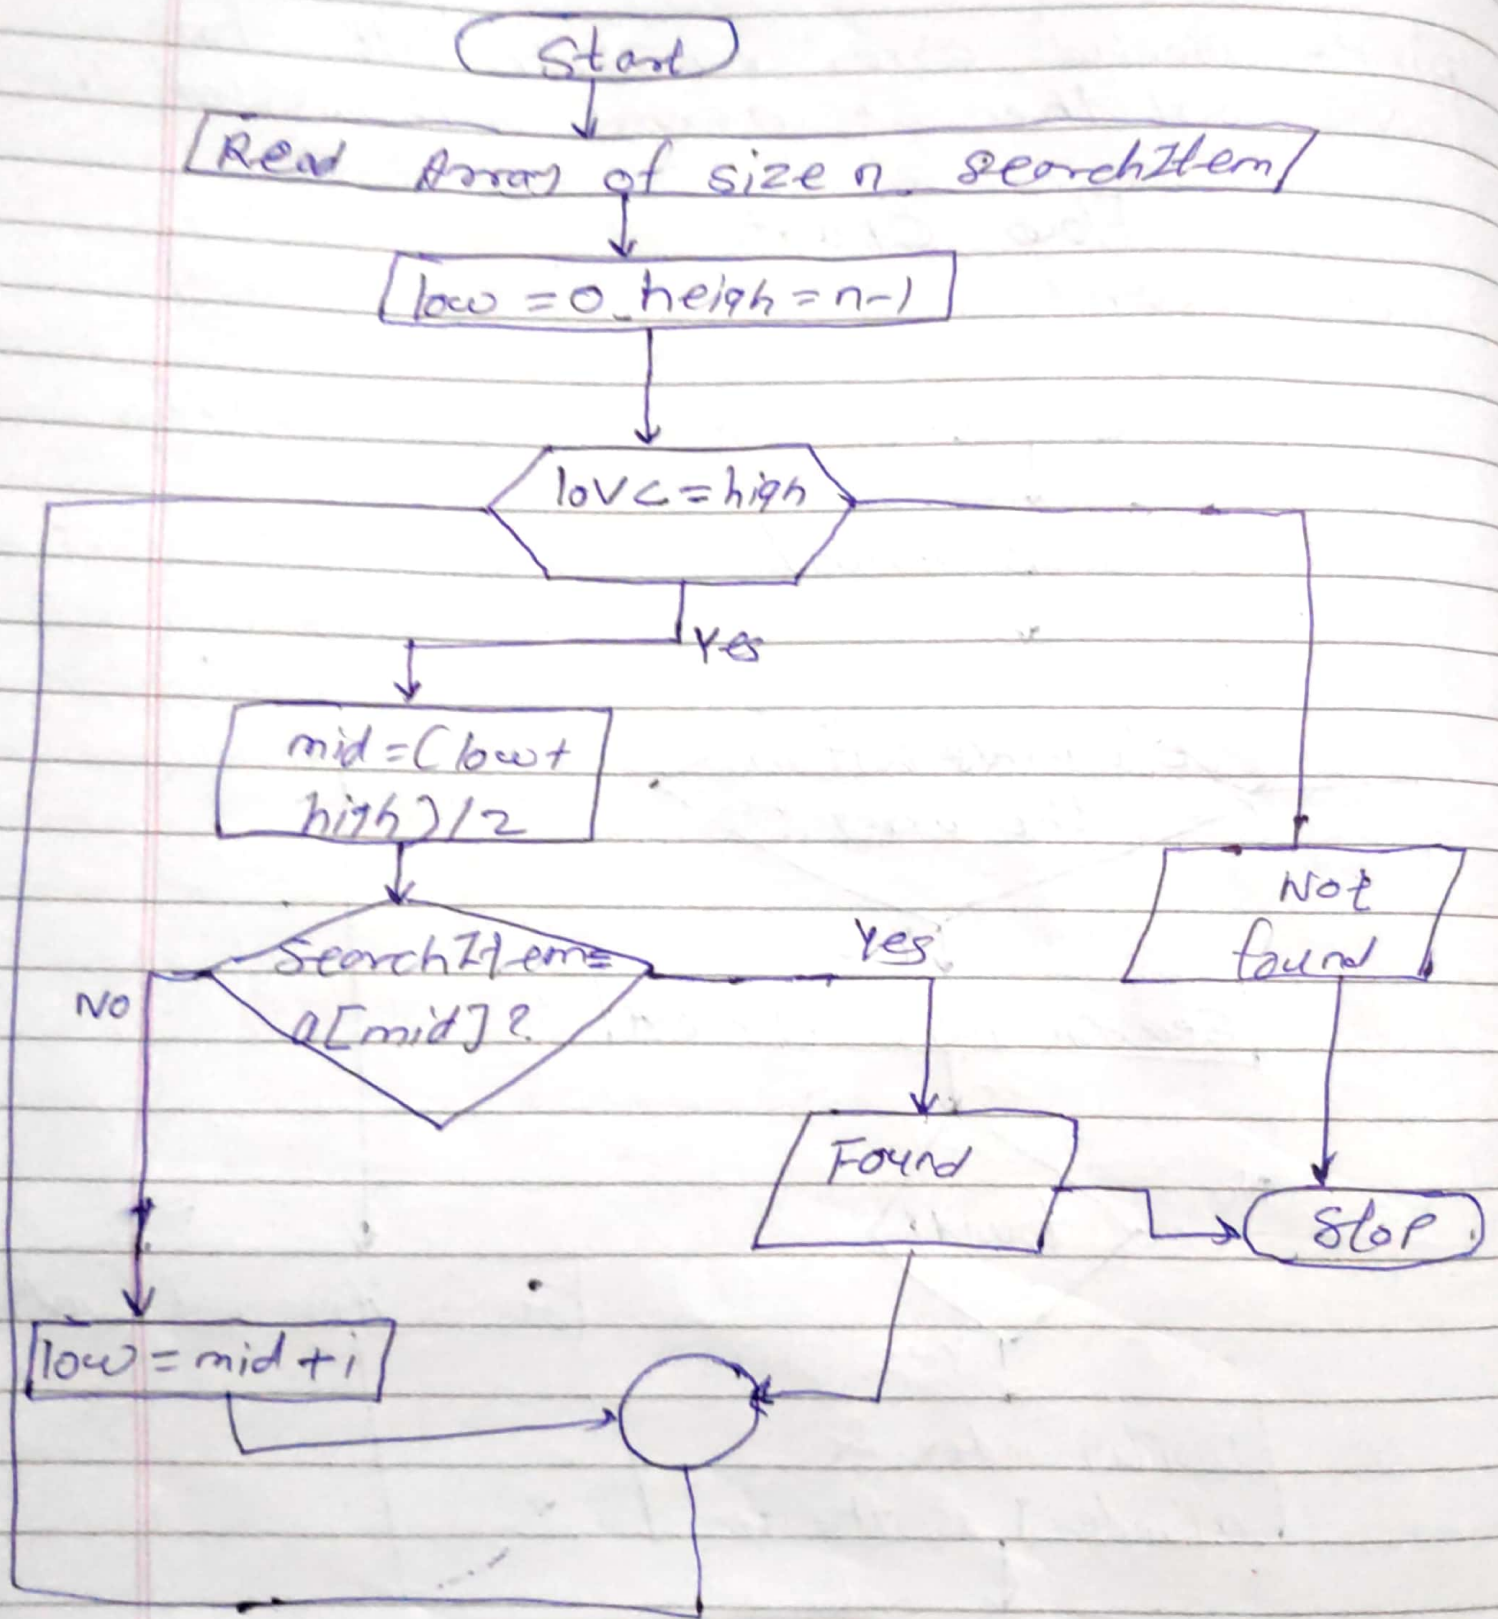 Start
Read Array of size n searchItem
low = 0 heigh = n-1
lov <= high
Yes
mid = (low +
high) / 2
Not
found
SearchItem =
a[mid] ?
Yes
No
Found
Stop
low = mid + i